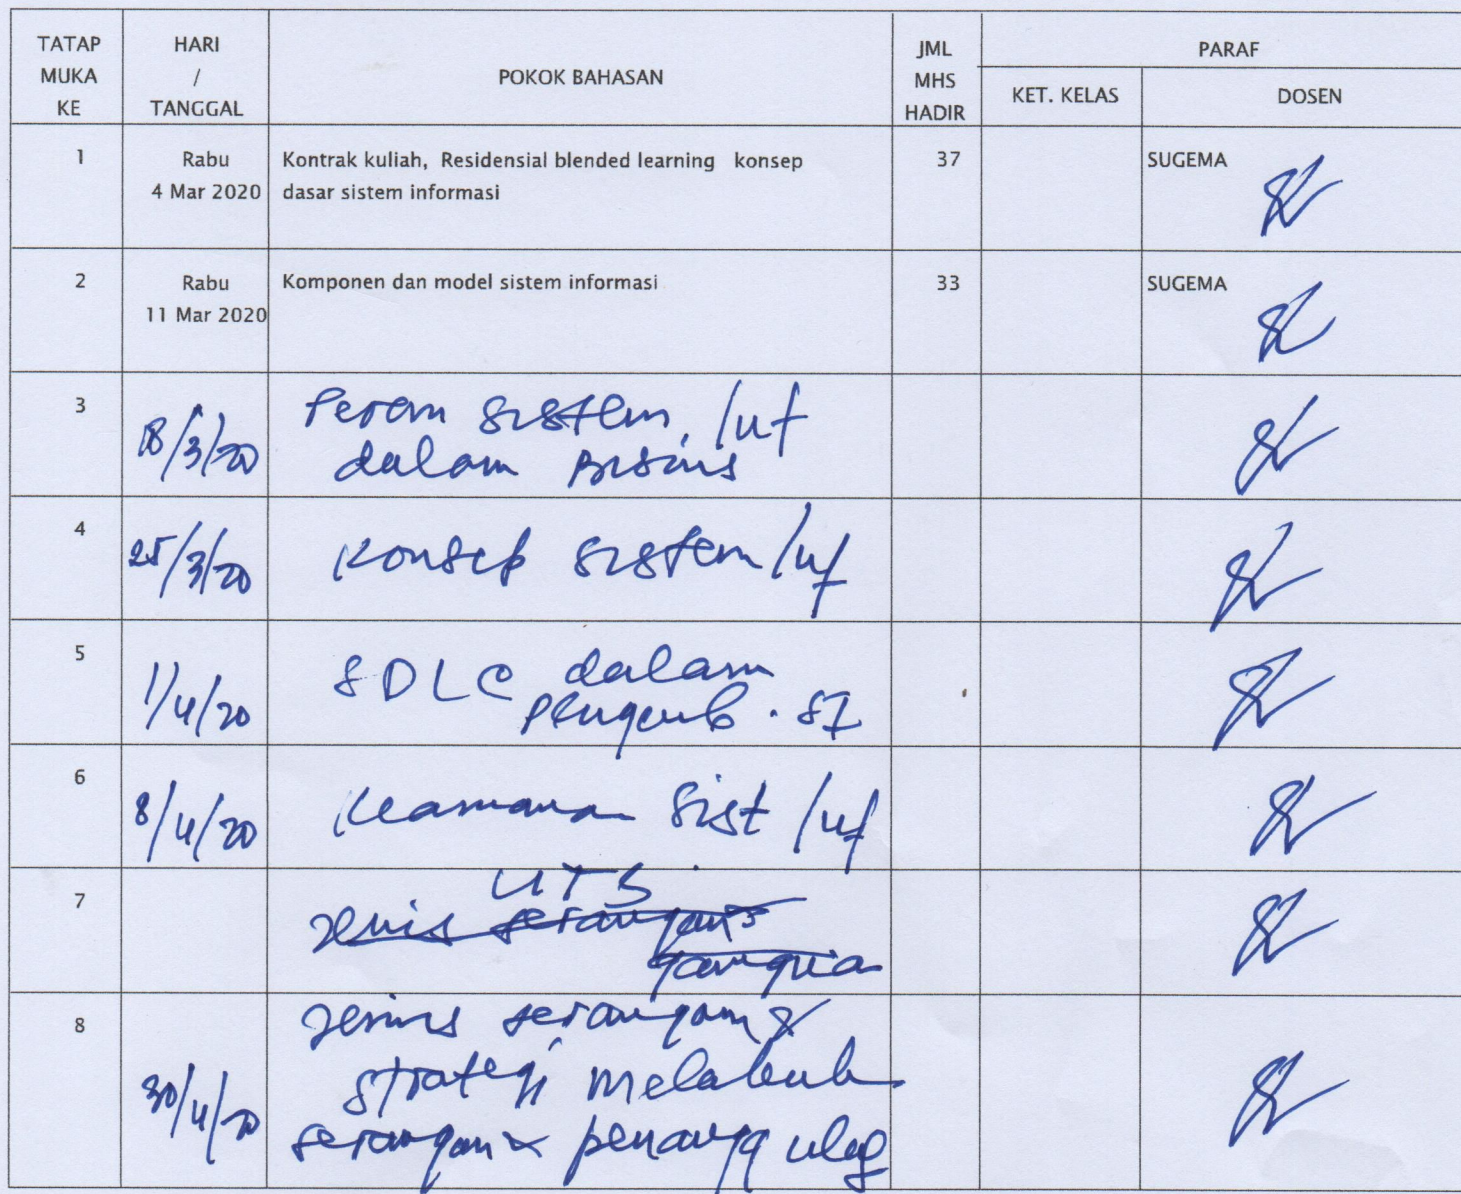 TATAP MUKA KE
HARI / TANGGAL
POKOK BAHASAN
JML MHS HADIR
PARAF
KET. KELAS
DOSEN
1
Rabu
4 Mar 2020
Kontrak kuliah, Residensial blended learning konsep
dasar sistem informasi
37
SUGEMA
2
Rabu
11 Mar 2020
Komponen dan model sistem informasi
33
SUGEMA
3
18/3/20
Peran sistem Inf
dalam Bisnis
4
25/3/20
Konsep sistem Inf
5
1/4/20
SDLC dalam
pengemb. SI
6
8/4/20
Keamanan Sist Inf
7
UTS
jenis serangan
8
30/4/20
jenis serangan &
strategi
serangan &